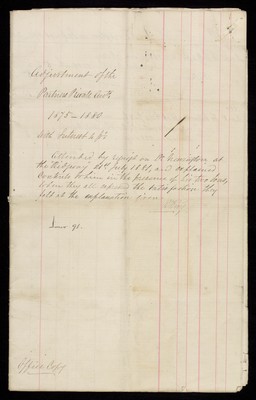 Adjustment of the
Partners Private Accts
1875 – 1880
with Interest to
Attended by request on Mr
the Ridgeway 14th July 1881, and explained
Contents to him in the presence of his two sons,
when they all expressed the satisfaction they
felt at the explanation given
June 91.
Office Copy